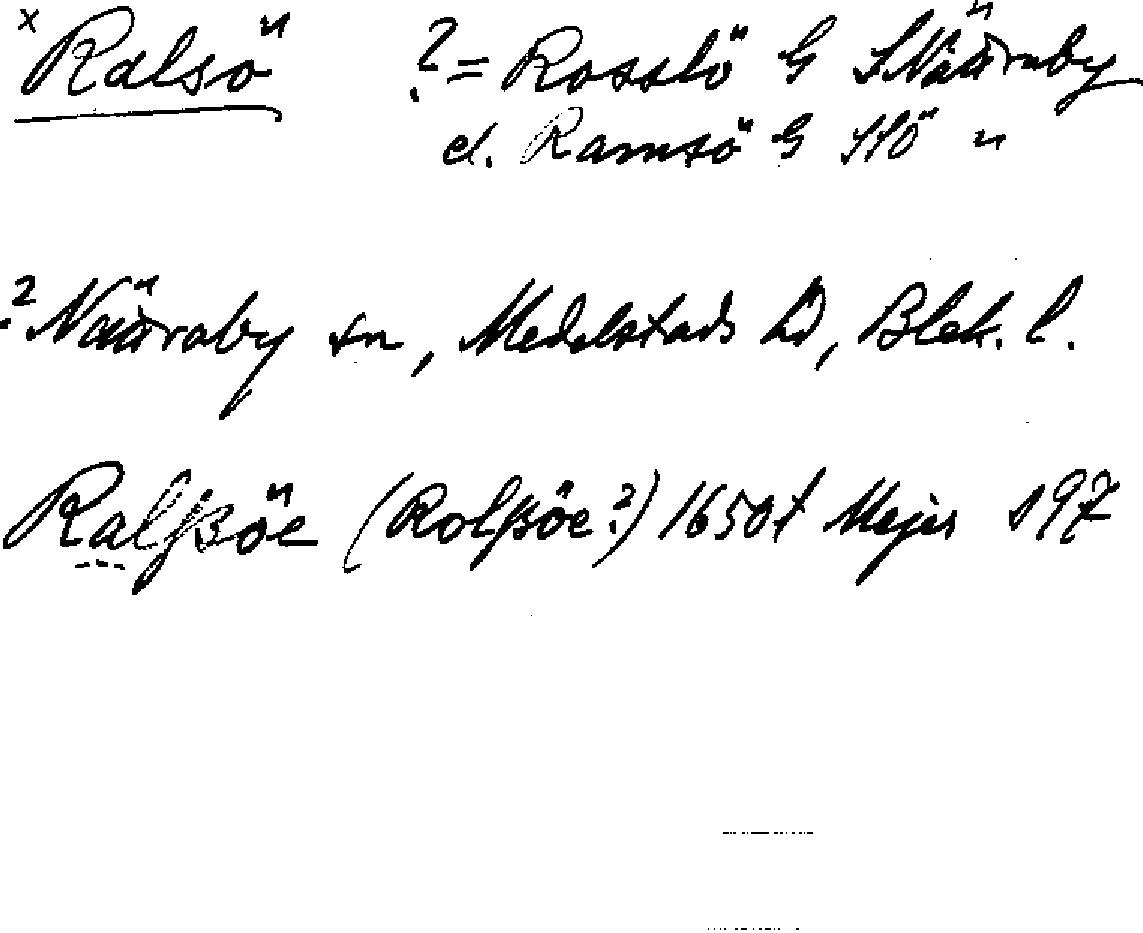 x Ralsö ? = Rosslö G S Nättraby
el. Ramsö G StÖ "
? Nättraby sn, Medelstads hd, Blek. l.
Ralßöe (Rolßöe?) 1650t Mejer 197